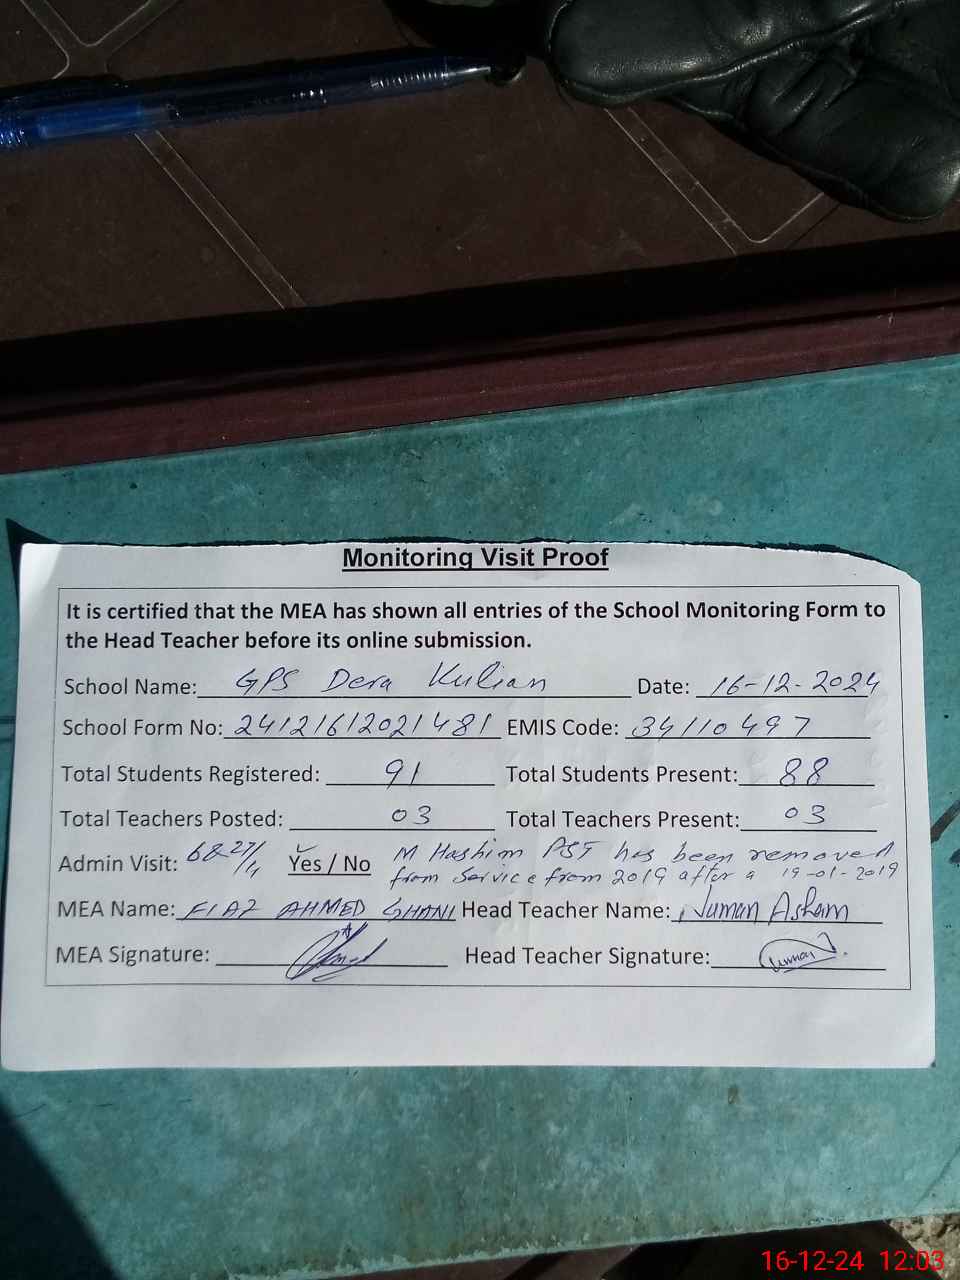 Monitoring Visit Proof
It is certified that the MEA has shown all entries of the School Monitoring Form to
the Head Teacher before its online submission.
School Name: GPS Dera Kulian Date: 16-12-2024
School Form No: 24121612021481 EMIS Code: 34110497
Total Students Registered: 91 Total Students Present: 88
Total Teachers Posted: 03 Total Teachers Present: 03
Admin Visit: 6&27/11 Yes / No M Hashim PST has been removed
from Service from 2019 after a 19-01-2019
MEA Name: FIAZ AHMED GHANI Head Teacher Name: Numan Aslam
MEA Signature: Head Teacher Signature: Numan
16-12-24 12:03